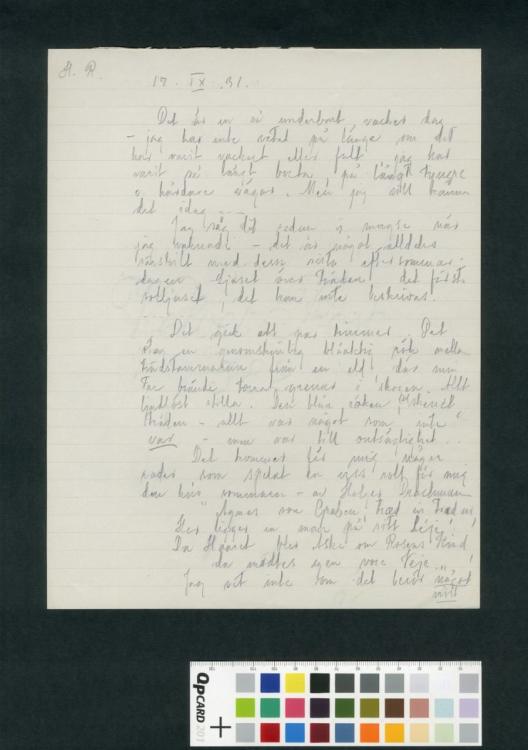 H. R.
17. IX .31.
Det är en så underbart vacker dag
– jag har inte vetat på länge om det
har varit vackert eller fult jag har
varit på långt borta på långt tyngre
o hårdare vägar. Men jag vill
det idag ---
Jag såg det redan i morgse när
jag vaknade – det är något alldeles
särskilt med dessa sista eftersommar-
dagar. Ljuset över träden det första
solljuset, det kan inte beskrivas.
Det gick ett par timmar. Det
låg en genomskinlig blåaktig rök mellan
trädstammarna från en eld, där man
brände torra grenar i skogen. Allt
ljudlöst stilla. Den blåa röken,
träden – allt var något som inte
var – men var till outsäglighet...
Det kommer för mig några
rader som spelat en viss roll för mig
den här sommaren – av Holger Drachmann
"Agnes von Graben, træd
Her ligger en mand på sott Leje!
Da Haaret blev Aske om Rosens Kind
da mødtes igen vore Veje..."
Jag vet inte om det beror något
mitt